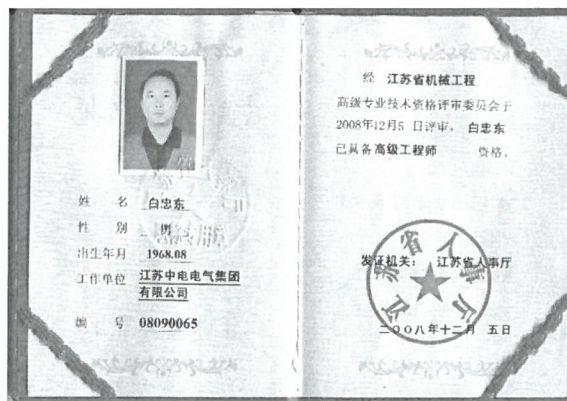 姓 名 白忠东
性 别 男
出生年月 1968.08
工作单位 江苏中电电气集团
有限公司
编 号 08090065
经 江苏省机械工程
高级专业技术资格评审委员会于
2008年12月5 日评审， 白忠东
已具备高级工程师 资格。
发证机关： 江苏省人事厅
江苏省人事厅
二〇〇八年十二月 五日